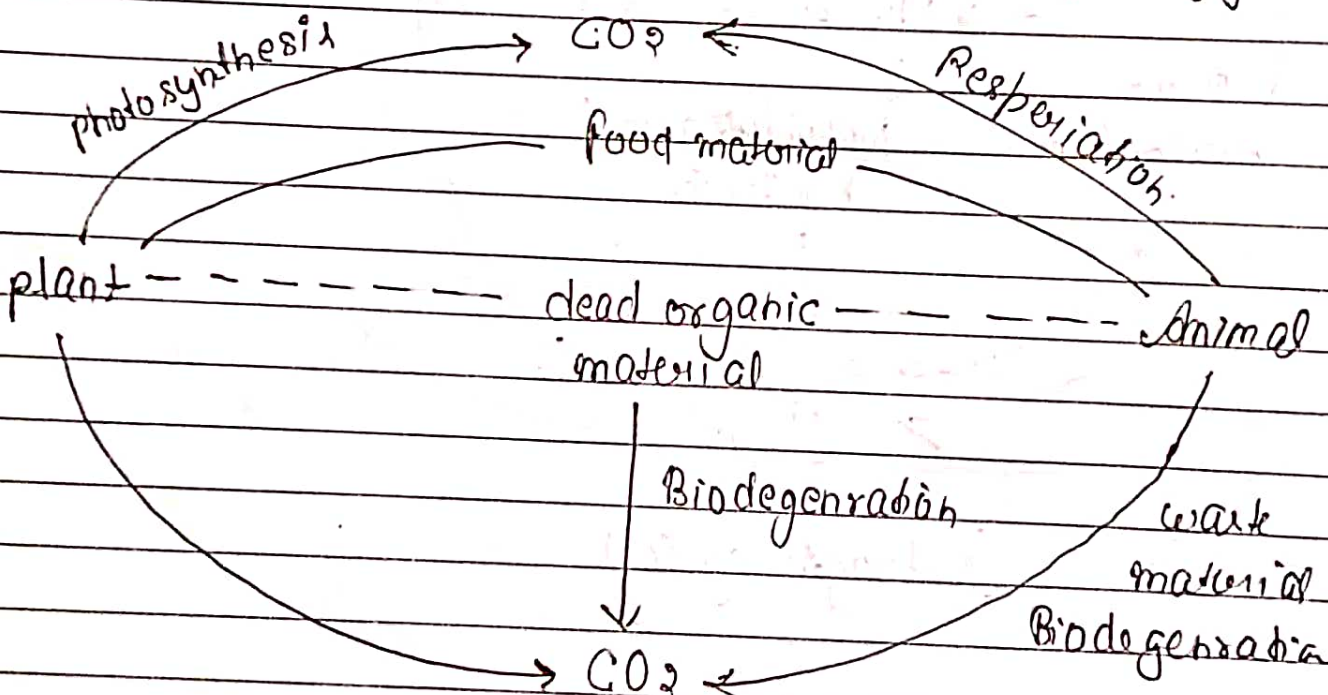 CO2
photosynthesis
Resperiation.
food material
plant
dead organic
material
Animal
Biodegenration
waste
material
Biodegenration
CO2